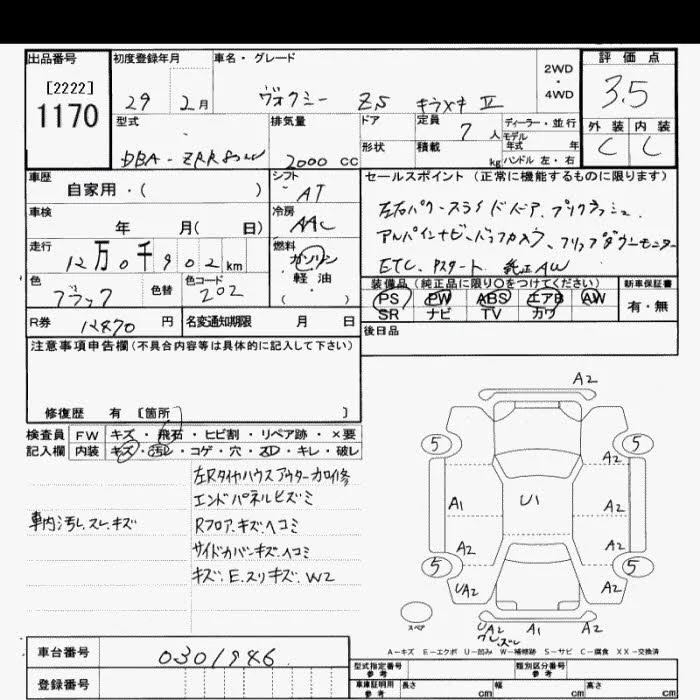 出品番号 初度登録年月 車名・グレード 評価点
[2222]
1170
29 2月 ヴォクシー ZS キラメキⅡ 2WD・4WD 3.5
型式 排気量 ドア 定員 7人 ディーラー・並行 外装 内装
モデル年式 年
DBA-ZRR80W 2000CC 形状 積載 kg ハンドル 左・右 C C
車歴 自家用・( ) シフト AT
セールスポイント (正常に機能するものに限ります)
車検 年 月( 日) 冷房 AAC
左右パワースライドドア、プリクラッシュ
アルパインナビ、バックカメラ、フリップダウンモニター
ETC、Pスタート 純正AW
走行 12万0千902km 燃料 ガソリン 軽油 ( )
色 ブラック 色替 色コード 202
装備品(純正品に限り○をつけてください) 新車保証書
PS PW ABS エアB AW 有・無
SR ナビ TV カワ
R券 12870円 名変通知期限 月 日
後日品
注意事項申告欄(不具合内容等は具体的に記入して下さい)
修復歴 有 [箇所 ]
検査員 FW キズ・飛石・ヒビ割・リペア跡・×要
記入欄 内装 キズ・汚レ・コゲ・穴・スレ・キレ・破レ
左Rタイヤハウスアウターカロ修
エンドパネルヒズミ
車内汚レ、スレ、キズ Rフロア、キズ、ヘコミ
サイドカバンキズ、ヘコミ
キズ、E、スリキズ、W2
A2
5 5
A2
A1 U1 A2
A2 A2
5 5
UA2 A2
スペア
UA2 A1 A2
A-キズ E-エクボ U-凹み W-補修跡 S-サビ C-腐食 XX-交換済
車台番号 0301946
型式指定番号 参考 類別区分番号 参考
登録番号
車庫証明用 参考 長さ cm 幅 cm 高さ cm